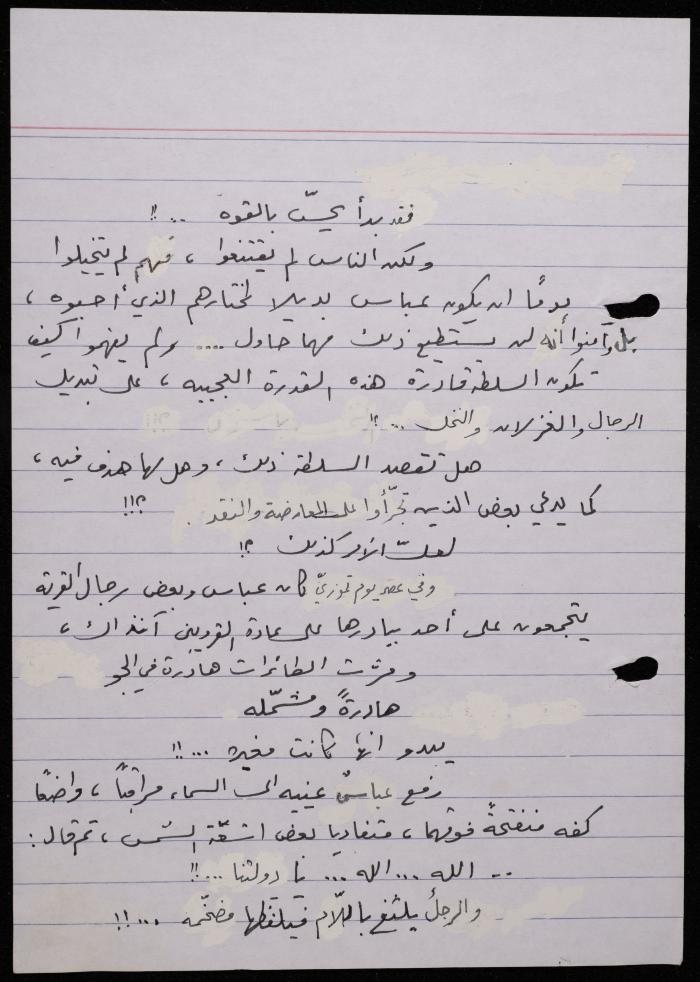 فقد بدأ يحسّ بالقوه ..!!
ولكن الناس لم يقتنعوا ، فهم لم يتخيلوا
يومًا ان يكون عباس بديلا لمختارهم الذي أحبوه ،
بل وآمنوا أنه لن يستطيع ذلك مهما حاول .... ولم يفهموا كيف
تكون السلطة قادرة هذه القدرة العجيبه ، على تبديل
الرجال والغزلان والنحل ...؟!
هل تقصد السلطة ذلك ، وهل لها هدف فيه ،
كما يدعي بعض الذين تجرّأوا على المعارضة والنقد . ؟!!
لعلّ الأمر كذلك ؟!
وفي عصر يوم تموزيّ كان عباس وبعض رجال القرية
يتجمعون على أحد بيادرها على عادة القرويين آنذاك ،
ومرّت الطائرات هادرة في الجو
هادرةً ومشمّله
يبدو انها كانت مغيره ...!!
رفع عباسٌ عينيه الى السماء مراقبًا ، واضعًا
كفه منفتحةً فوقهما ، متفاديا بعض اشعّة الشمس ، ثم قال :
.. الله ... الله ... يا دولتنا ...!!
والرجلُ يلثغ باللّام فيلفظها مفخّمه ...!!